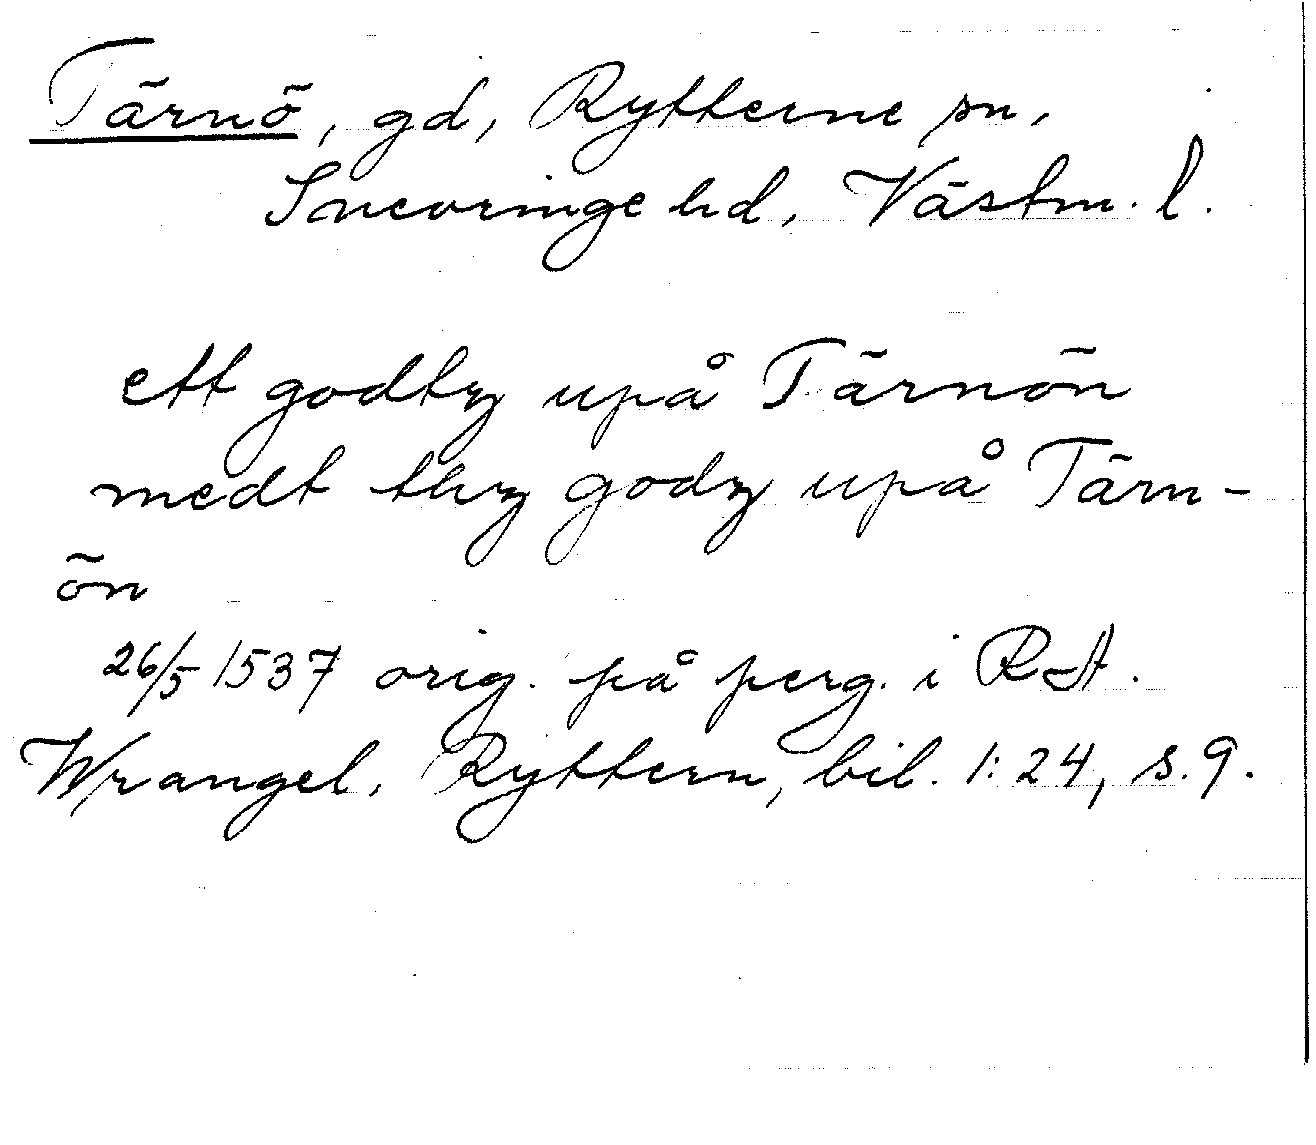 Tärnö, gd, Rytterne sn,
Snevringe hd, Västm. l.
ett godtz upå Tärnön
medt thz godz upå Tärn-
ön
26/5 1537 orig. på perg. i RA.
Wrangel, Ryttern, bil. 1:24, s. 9.